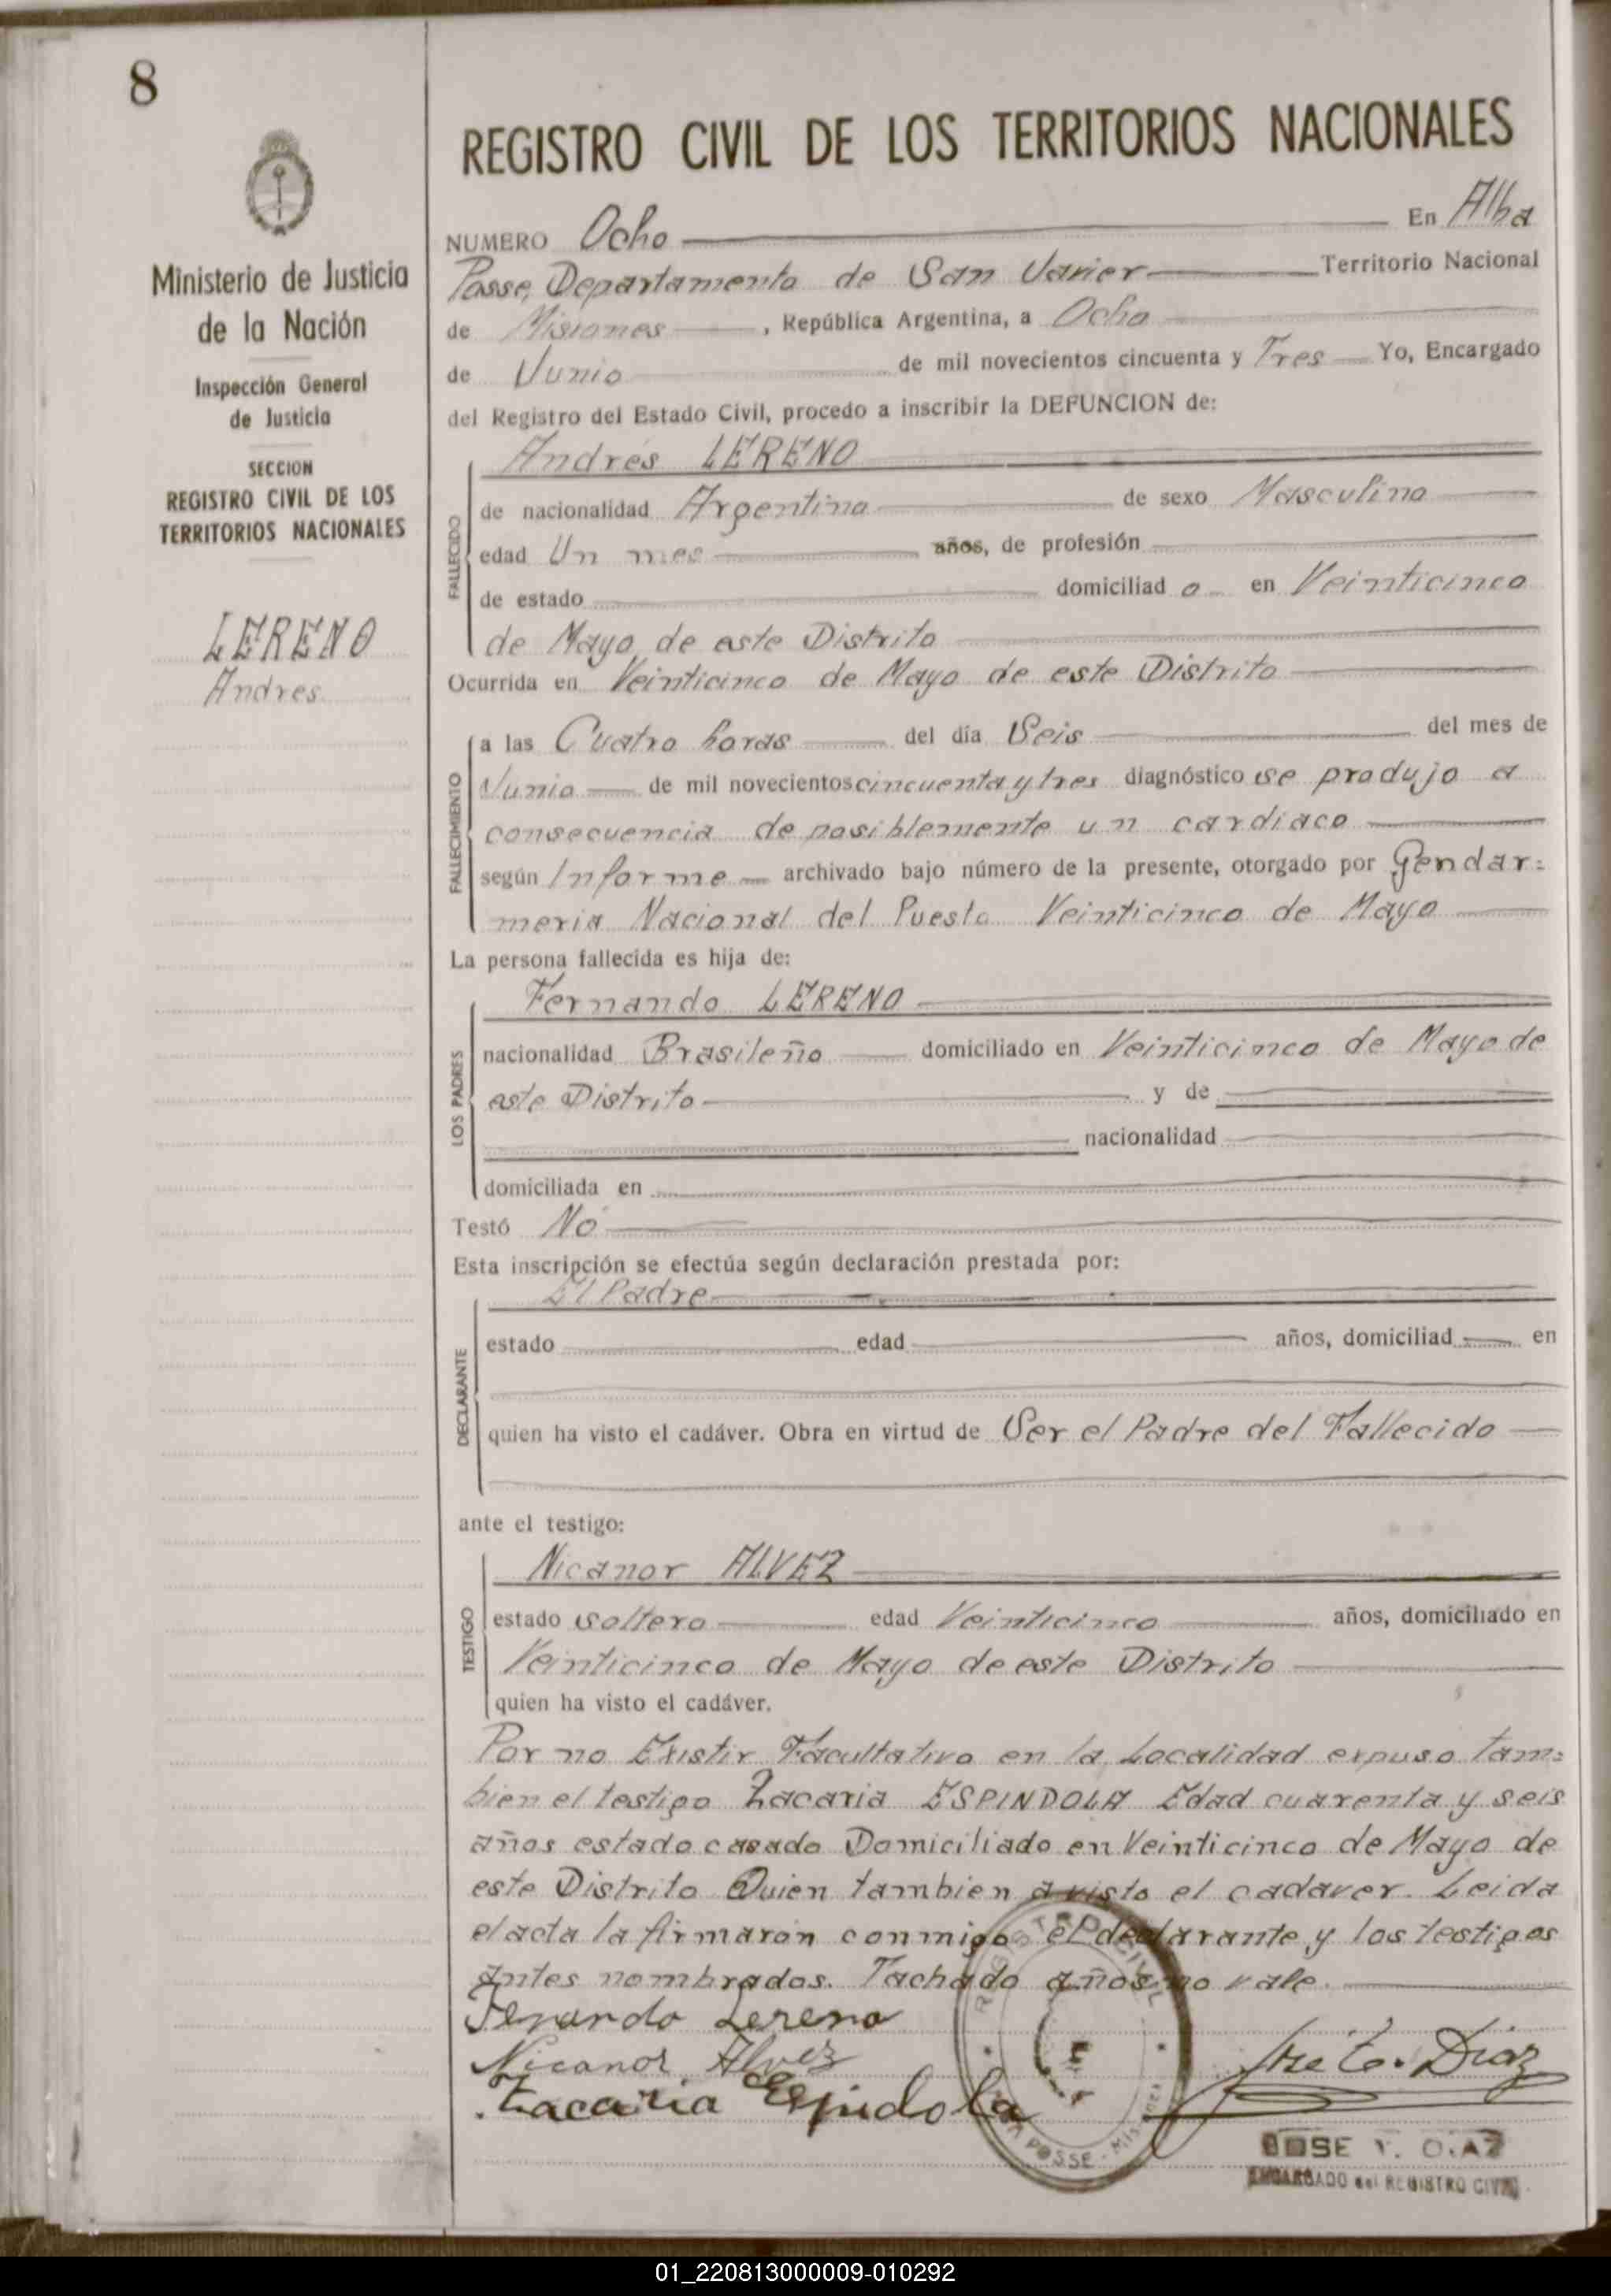 8
Ministerio de Justicia
de la Nación
Inspección General
de Justicia
SECCION
REGISTRO CIVIL DE LOS
TERRITORIOS NACIONALES
LERENO
Andres
REGISTRO CIVIL DE LOS TERRITORIOS NACIONALES
NUMERO Ocho En Alba
Posse, Departamento de San Javier Territorio Nacional
de Misiones, República Argentina, a Ocho
de Junio de mil novecientos cincuenta y Tres Yo, Encargado
del Registro del Estado Civil, procedo a inscribir la DEFUNCION de:
Andrés LERENO
FALLECIDO
de nacionalidad Argentina de sexo Masculino
edad Un mes años, de profesión
de estado domiciliad o en Veinticinco
de Mayo de este Distrito
Ocurrida en Veinticinco de Mayo de este Distrito
FALLECIMIENTO
a las Cuatro horas del día Seis del mes de
Junio de mil novecientos cincuenta y tres diagnóstico se produjo a
consecuencia de posiblemente un cardiaco
según Informe archivado bajo número de la presente, otorgado por Gendar=
meria Nacional del Puesto Veinticinco de Mayo
La persona fallecida es hija de:
Fernando LERENO
LOS PADRES
nacionalidad Brasileño domiciliado en Veinticinco de Mayo de
este Distrito y de
nacionalidad
domiciliada en
Testó No
Esta inscripción se efectúa según declaración prestada por:
El Padre
DECLARANTE
estado edad años, domiciliad en
quien ha visto el cadáver. Obra en virtud de Ser el Padre del Fallecido
ante el testigo:
Nicanor ALVEZ
TESTIGO
estado soltero edad Veinticinco años, domiciliado en
Veinticinco de Mayo de este Distrito
quien ha visto el cadáver.
Por no Existir Facultativo en la Localidad expuso tam=
bien el testigo Zacaria ESPINDOLA Edad cuarenta y seis
años estado casado Domiciliado en Veinticinco de Mayo de
este Distrito Quien tambien a visto el cadaver. Leida
el acta la firmarón conmigo el declarante y los testigos
antes nombrados. Tachado años no vale.
Ferando Lereno
Nicanor Alvez
Zacaria Espindola
José E. Diaz
JOSE . DIAZ
ENCARGADO del REGISTRO CIVIL
REGISTRO CIVIL
POSSE - Misiones
01_220813000009-010292